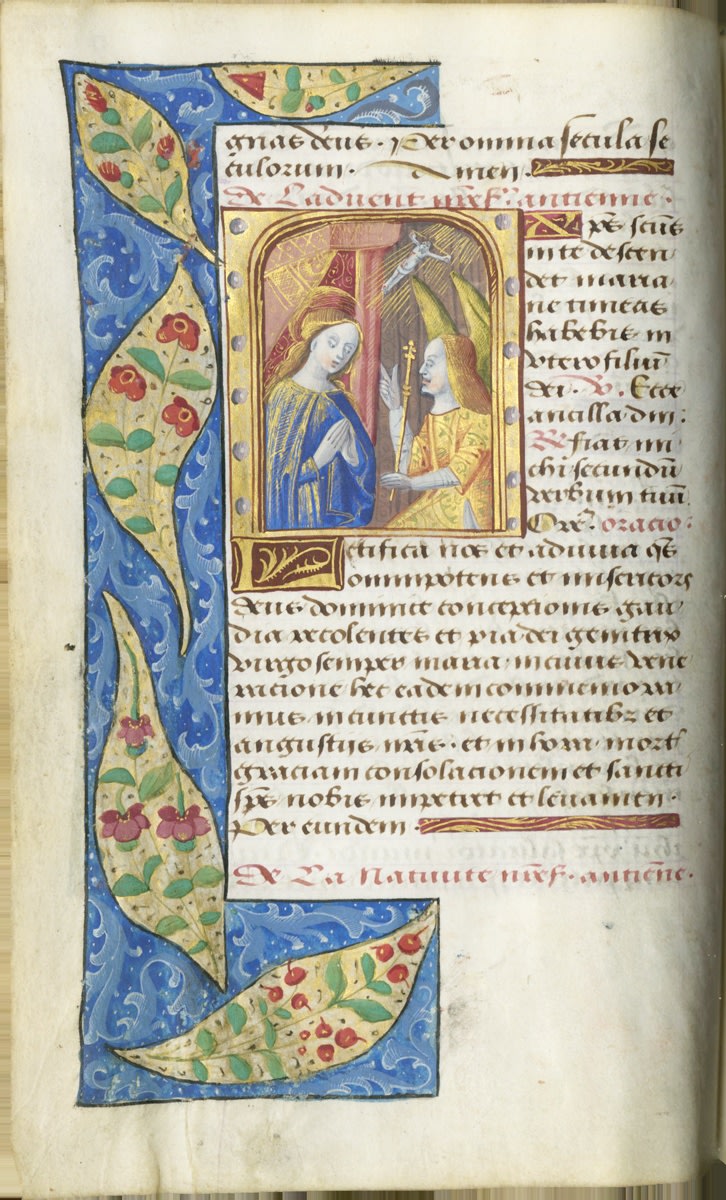 gnas deus. Per omnia secula se
culorum. Amen.
De Laduent nr̄e s. antienne.
Xp̄s scūs
in te descen
det maria
ne timeas
habebis in
vtero filiū
dei. V. Ecce
ancilla dn̄i:
R fiat mi
chi secundū
verbum tuū.
Orē. oracio:
Letifica nos et adiuua qs̄
omnipotens et misericors
deus dominice concepcionis gau
dia recolentes et pia dei genitrix
virgo semper maria. in cuius vene
racione hec eadem commemora
mus in cunctis necessitatibȝ et
angustijs nr̄is. et in hora mort̄
graciam consolacionem et sancti
sp̄s nobis impetret et leuamen.
Per eundem.
De La Natiuite nr̄e s. antiēne.